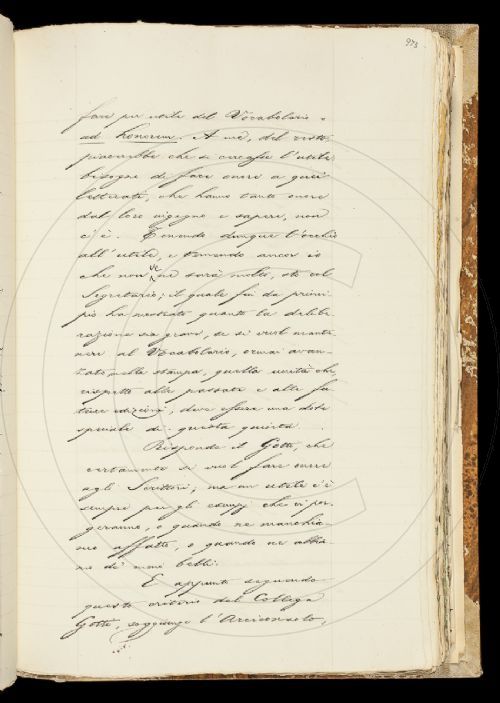 973
fare per utile del Vocabolario o
ad honorem. A me, del resto,
piacerebbe che si cercasse l'utile:
bisogno di fare onore a quei
letterati, che hanno tanto onore
dal loro ingegno e sapere, non
c'è. Tenendo dunque l'occhio
all'utile, e temendo ancor io
che non ve ne sarà molto, sto col
Segretario; il quale fin da princi-
pio ha mostrato quanto la delibe-
razione sia grave, se si vuol mante-
nere al Vocabolario, ormai avan-
zato nella stampa, quella unità che
rispetto alle passate e alle fu-
ture edizioni, deve essere una dote
speciale di questa quinta.
Risponde il Gotti, che
certamente si vuol fare onore
agli Scrittori; ma un utile c'è
sempre per gli esempj che ci por-
geranno, o quando ne manchia-
mo affatto, o quando ne abbia-
mo de' meno belli.
E appunto seguendo
questo criterio del Collega
Gotti, soggiunge l'Arciconsolo,